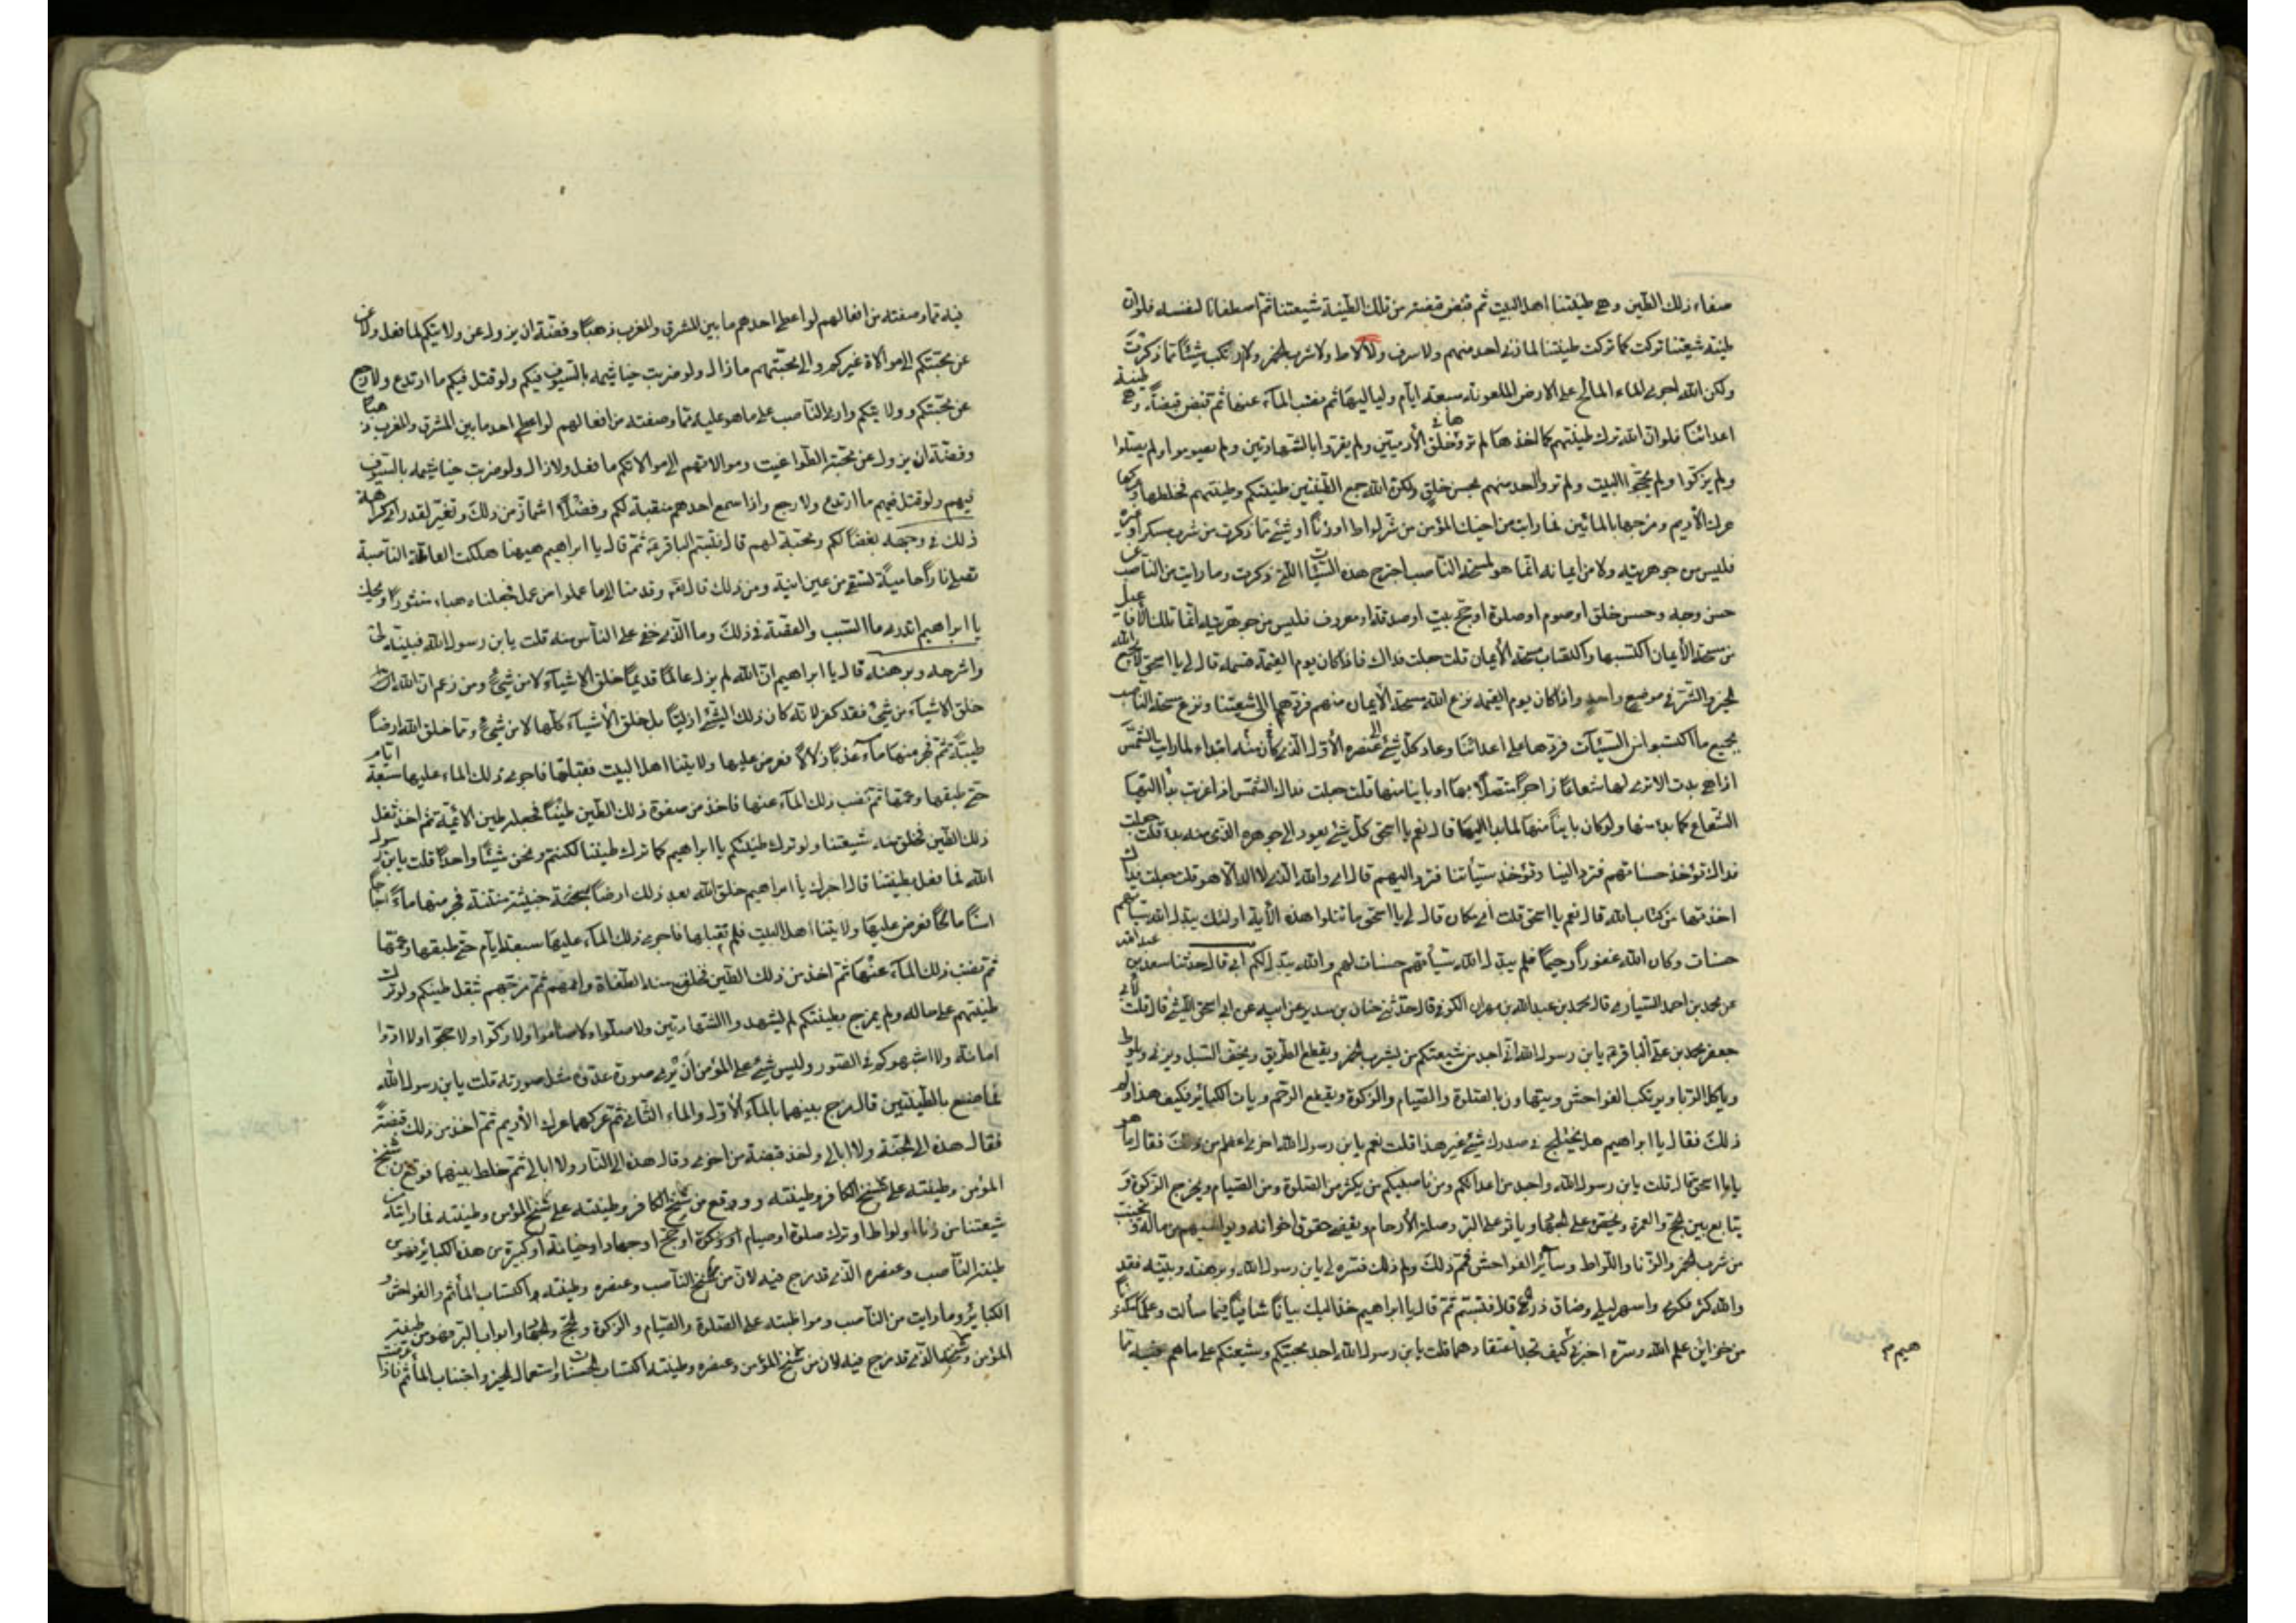 صفاء ذلك الطين وهي طينتنا اهل البيت ثم قبض قبضة من تلك الطينة شيعتنا ثم اصطفانا لنفسه فلو ان
طينة شيعتنا تركت كما تركت طينتنا لما زنى احد منهم ولا سرق ولا لاط ولا شرب الخمر ولا ارتكب شيئا مما ذكرت
ولكن الله اجرى الماء المالح على الارض الملعونة سبعة ايام ولياليها ثم نضب الماء عنها ثم قبض قبضة وهي طينة
اعدائنا فلو ان الله ترك طينتهم كما اخذها لم تروهم في خلق الآدميين ولم يقروا بالشهادتين ولم يصوموا ولم يصلوا
ولم يزكوا ولم يحجوا البيت ولم تروا احد منهم بحسن خلق ولكن الله جمع الطينتين طينتكم وطينتهم فخلطها وعركها
عرك الأديم ومزجها بالمائين فما رايت من اخيك المؤمن من شر لواط او زنا او شيء مما ذكرت من شرب مسكر او غيره
فليس من جوهريته ولا من ايمانه انما هو بمسحة الناصب اجترح هذه السيئات التي ذكرت وما رايت من الناصب
حسن وجه وحسن خلق او صوم او صلوة او حج بيت او صدقة او معروف فليس من جوهريته انما تلك الافاعيل
من مسحة الأيمان اكتسبها واكتساب مسحة الأيمان قلت جعلت فداك فاذا كان يوم القيمة فمه قال لي يا اسحق لايجمع الله
الخير والشر في موضع واحد واذا كان يوم القيمة نزع الله مسحة الأيمان منهم فردها الى شيعتنا ونزع مسحة الناصب
بجميع ما اكتسبوا من السيئات فردها على اعدائنا وعاد كل شيء الى عنصره الأول الذي كان منه ابتداء اما رايت الشمس
اذا هي بدت الا ترى لها شعاعا زاجرا متصلا بها او باينا منها قلت جعلت فداك الشمس اذا غربت بدأ اليها
الشعاع كما بدا منها ولو كان باينا منها لما بدا اليها قال نعم يا اسحق كل شيء يعود الى جوهره الذي منه بدا قلت جعلت
فداك تؤخذ حسناتهم فترد الينا وتؤخذ سيئاتنا فترد اليهم قال اي والله الذي لا اله الا هو قلت جعلت فداك
اخذتها من كتاب الله قال نعم يا اسحق قلت اي مكان قال لي يا اسحق ما تتلوا هذه الأية اولئك يبدل الله سيئاتهم
حسنات وكان الله غفورا رحيما فلم يبدل الله سيئاتهم حسنات لهم والله يبدل لكم ابي قال حدثنا سعد بن عبد الله
عن محمد بن احمد السياري قال محمد بن عبد الله بن مهران الكوفي قال حدثني حنان بن سدير عن ابيه عن ابي اسحق الليثي قال قلت لأبي
جعفر محمد بن علي الباقر يا بن رسول الله اني اجد من شيعتكم من يشرب الخمر ويقطع الطريق ويخيف السبل ويزني ويلوط
وياكل الربا ويرتكب الفواحش ويتهاون بالصلوة والصيام والزكوة ويقطع الرحم ويات الكبائر فكيف هذا ولم
ذلك فقال يا ابراهيم هل يختلج في صدرك شيء غير هذا قلت نعم يابن رسول الله اخرى اعظم من ذلك فقال ما هو
يا ابا اسحق قال قلت يا بن رسول الله واجد من اعدائكم ومن ناصبيكم من يكثر من الصلوة ومن الصيام ويخرج الزكوة و
يتابع بين الحج والعمرة ويحض على الجهاد وياثر على البر وصلة الأرحام ويقضي حقوق اخوانه ويواسيهم من ماله ويتجنب
من شرب الخمر والزنا واللواط وسائر الفواحش فمم ذلك ولم ذلك فسره لي يابن رسول الله وبرهنه وبينه فقد
والله كثر فكري واسهر ليلي وضاق ذرعي قال فتبسم ثم قال يا ابراهيم خذ اليك بيانا شافيا فيما سألت وعلما مكنونا
من خزائن علم الله وسره اخبرني كيف تجد اعتقادهما قلت يا بن رسول الله اجد محبيكم وشيعتكم على ما هم عليه مما
هيم م
فيه مما وصفته من افعالهم لو اعطي احدهم ما بين المشرق والمغرب ذهبا وفضة ان يزول عن ولايتكم لما فعل ولا عن
عن محبتكم الى موالاة غيركم والى محبتهم ما زال ولو ضربت خياشيمه بالسيوف فيكم ولو قتل فيكم ما ارتدع ولا رجع
عن محبتكم وولايتكم وارى الناصب على ما هو عليه مما وصفته من افعالهم لو اعطي احد ما بين المشرق والمغرب ذهبا
وفضة ان يزول عن محبة الطواغيت وموالاتهم الى موالاتكم ما فعل ولا زال ولو ضربت خياشيمه بالسيوف
فيهم ولو قتل فيهم ما ارتدع ولا رجع واذا سمع احدهم منقبة لكم وفضلا اشمأز من ذلك وتغير لقد راى كراهة
ذلك في وجهه بغضا لكم ومحبة لهم قال فتبسم الباقر ثم قال يا ابراهيم هيهنا هلكت العاملة الناصبة
تصلى نارا حامية تسقى من عين انية ومن ذلك قال وقدمنا الى ما عملوا من عمل فجعلناه هباء منثورا ويحك
يا ابراهيم اتدري ما السبب والقصة في ذلك وما الذي خفي على الناس منه قلت يابن رسول الله فبينه لي
واشرحه وبرهنه قال يا ابراهيم ان الله لم يزل عالما قديما خلق الاشياء لا من شيء ومن زعم ان الله
خلق الاشياء من شيء فقد كفر لانه كان ذلك الشيء ازليا بل خلق الأشياء كلها لا من شيء ومما خلق الله ارضا
طيبة ثم فجر منها ماء عذبا زلالا فعرض عليها ولايتنا اهل البيت فقبلتها فاجرى ذلك الماء عليها سبعة ايام
حتى طبقها وعمها ثم نضب ذلك الماء عنها فاخذ من صفوة ذلك الطين طينا فجعله طين الأئمة ثم اخذ ثفل
ذلك الطين فخلق منه شيعتنا ولو ترك طينتكم يا ابراهيم كما ترك طينتنا لكنتم ونحن شيئا واحدا قلت يابن رسول
الله فما فعل بطينتنا قال اخبرك يا ابراهيم خلق الله بعد ذلك ارضا سبخة خبيثة منتنة فجر منها ماء اجاجا
اسنا مالحا فعرض عليها ولايتنا اهل البيت فلم تقبلها فاجرى ذلك الماء عليها سبعة ايام حتى طبقها وعمها
ثم نضب ذلك الماء عنها ثم اخذ من ذلك الطين فخلق منه الطغاة وائمتهم ثم مزجهم بثفل طينكم ولو ترك
طينتهم على حاله ولم يمزج بطينتكم لم يشهدوا الشهادتين ولا صلوا ولا صاموا ولا زكوا ولا حجوا ولا ادوا
امانة ولا اشبهوكم في الصور وليس شيء على المؤمن أن يرى صورة عدوه مثل صورته قلت يا بن رسول الله
فما صنع بالطينتين قال مزج بينهما بالماء الأول والماء الثاني ثم عركهما عرك الأديم ثم اخذ من ذلك قبضة
فقال هذه الى الجنة ولا ابالي واخذ قبضة من اخرى وقال هذه الى النار ولا ابالي ثم خلط بينهما فوقع من سنخ
المؤمن وطينته على سنخ الكافر وطينته ووقع من سنخ الكافر وطينته على سنخ المؤمن وطينته فما رايته من
شيعتنا من زنا او لواط او ترك صلوة او صيام او زكوة او حج او جهاد او خيانة او كبيرة من هذه الكبائر فهو من
طينة الناصب وعنصره الذي قد مزج فيه لان من سنخ الناصب وعنصره وطينته اكتساب المأثم والفواحش و
الكبائر وما رايت من الناصب ومواظبته على الصلوة والصيام والزكوة والحج والجهاد وابواب البر فهو من طينة
المؤمن وسنخه الذي قد مزج فيه لان من سنخ المؤمن وعنصره وطينته اكتساب الحسنات واستعمال الخير واجتناب المأثم فاذا